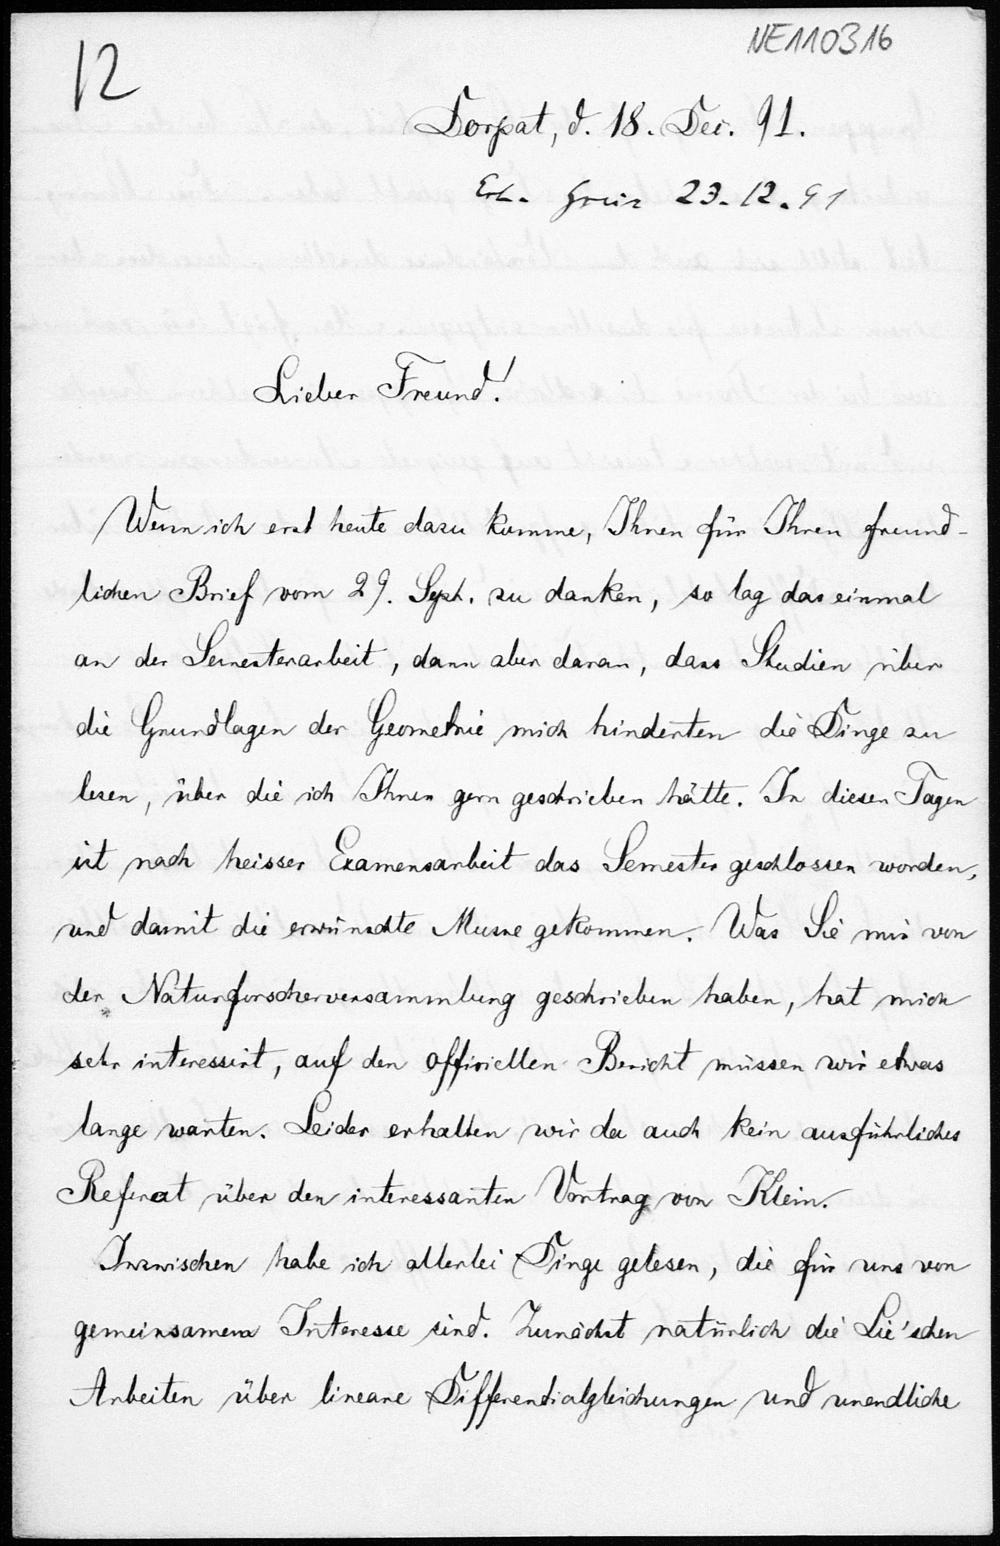 NE110316
12
Dorpat, d. 18. Dec. 91.
Erh. 23.12.91
Lieber Freund!
Wenn ich erst heute dazu komme, Ihnen für Ihren freund-
lichen Brief vom 29. Sept. zu danken, so lag das einmal
an der Semesterarbeit, dann aber daran, dass Studien über
die Grundlagen der Geometrie mich hinderten die Dinge zu
lesen, über die ich Ihnen gern geschrieben hätte. In diesen Tagen
ist nach heisser Examensarbeit das Semester geschlossen worden,
und damit die erwünschte Musse gekommen. Was Sie mir von
der Naturforscherversammlung geschrieben haben, hat mich
sehr interessirt, auf den officiellen Bericht müssen wir etwas
lange warten. Leider erhalten wir da auch kein ausführliches
Referat über den interessanten Vortrag von Klein.
Inzwischen habe ich allerlei Dinge gelesen, die für uns von
gemeinsamem Interesse sind. Zunächst natürlich die Lie'schen
Arbeiten über lineare Differentialgleichungen und unendliche